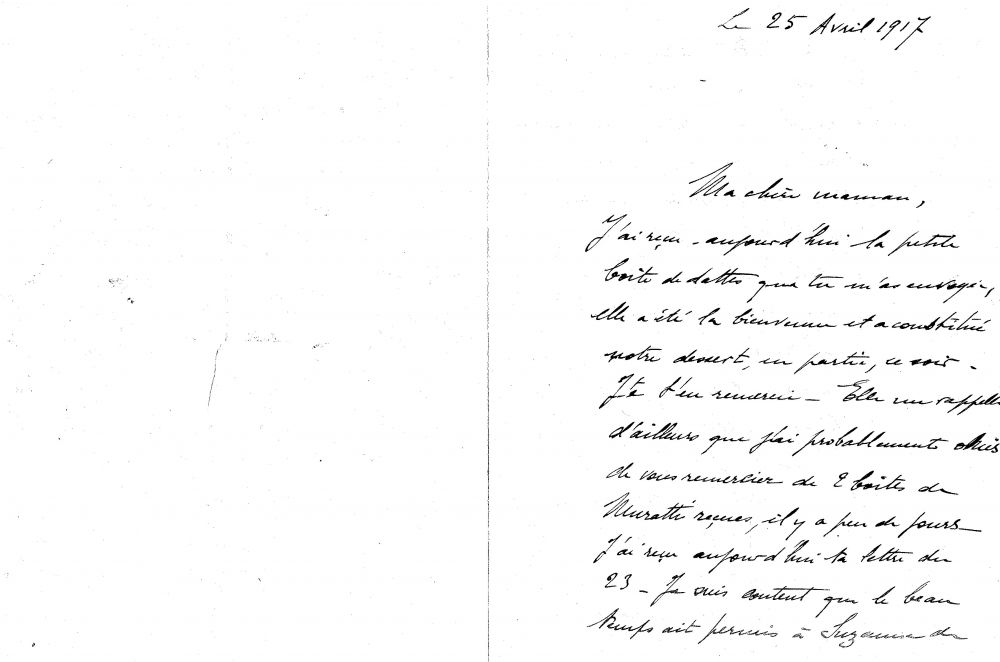 Le 25 Avril 1917
Ma chère maman,
J'ai reçu aujourd'hui la petite
boîte de dattes que tu m'as envoyée,
elle a été la bienvenue et a constitué
notre dessert, en partie, ce soir -
Je t'en remercie - Elle me rappelle
d'ailleurs que j'ai probablement omis
de vous remercier de 2 boîtes de
Muratti reçues, il y a peu de jours -
J'ai reçu aujourd'hui ta lettre du
23 - Je suis content que le beau
temps ait permis à Suzanne de